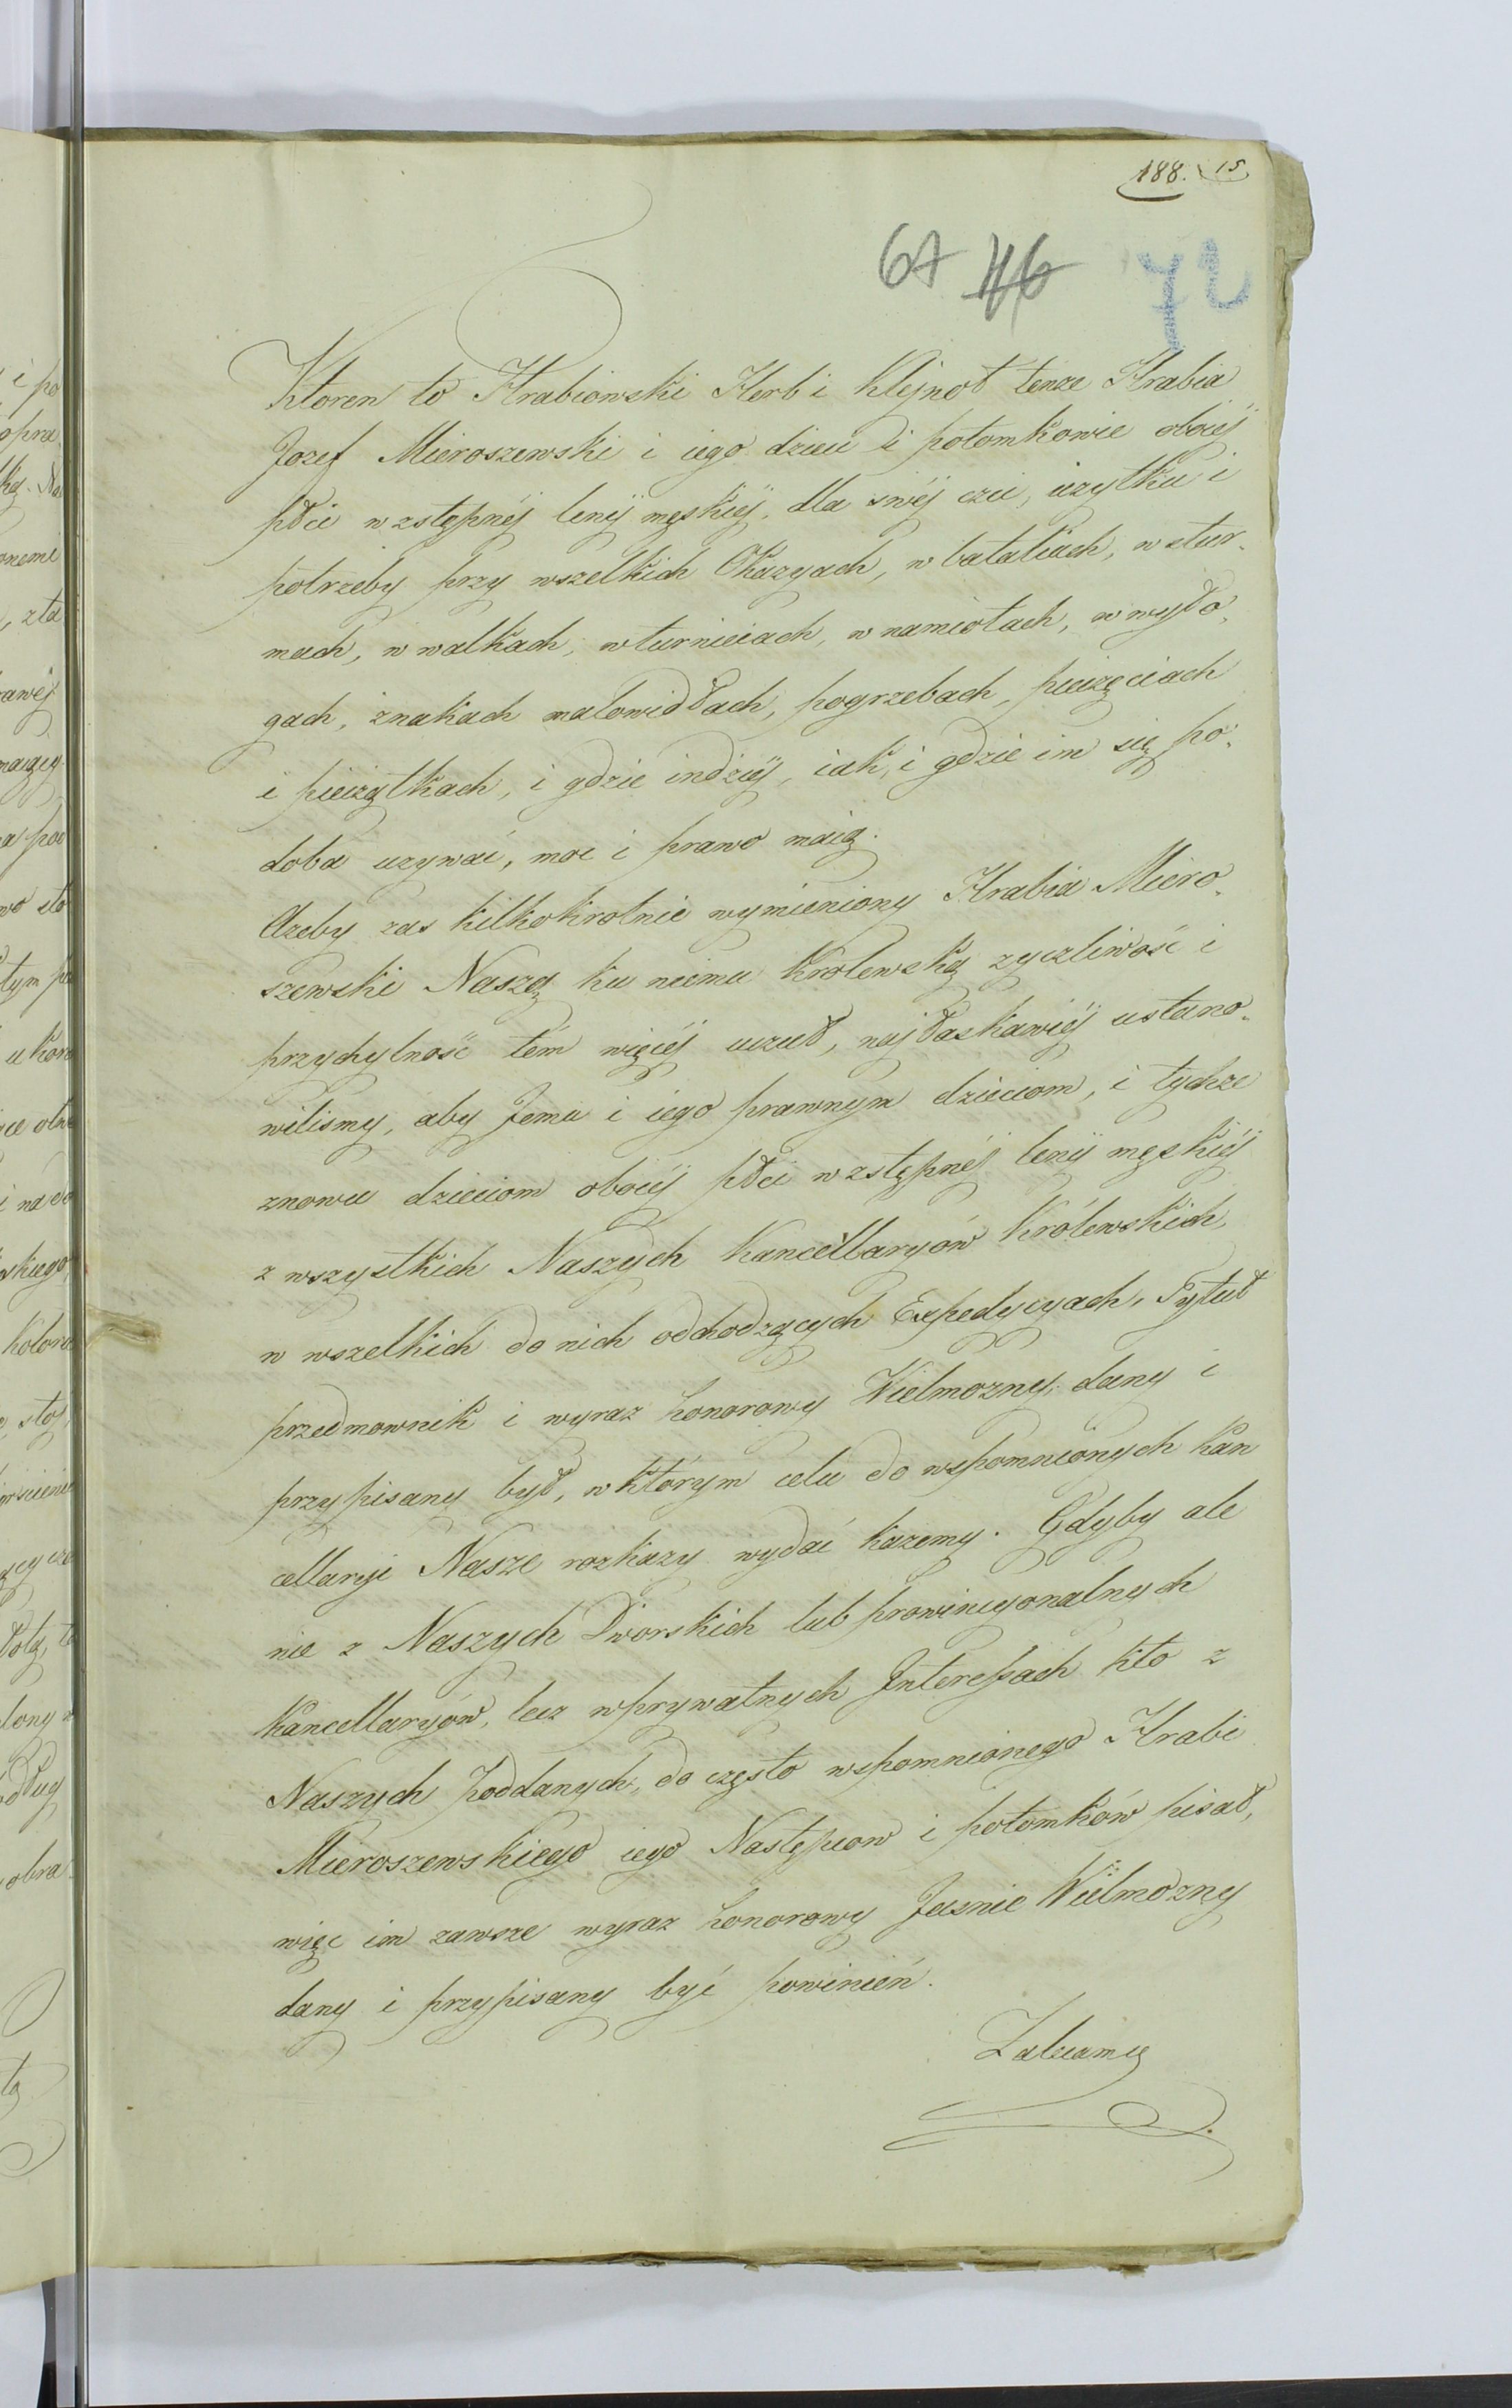 188. 15
67 46 72
Ktoren to Hrabiowski Herb i Klejnot tenze Hrabia
Jozef Mieroszewski i iego dzieci i potomkowie oboiéj
płci wzstępnéj lenij męskiéj, dla swéj czci, uzytku i
potrzeby przy wszelkich Okazyach, w bataliach, w stur-
mach, w walkach, w turnieiach, w namiotach, w wyło-
gach, znakach malowidłach, pogrzebach, pieczęciach
i pieczątkach, i gdzie indziéj, iak, i gdzie im się po-
doba uzywać, moc i prawo maią.
Azeby zas kilkokrotnie wymieniony Hrabia Miero-
szewski Naszą ku niemu Krolewską zyczliwość i
przychylność tém więcéj uczuł, najłaskawiéj ustano-
wilismy, aby Jemu i iego prawnym dzieciom, i tychze
znowu dzieciom oboiéj płci wzstępnéj lenij męskiéj
z wszystkich Naszych Kancellaryów Królewskich,
w wszelkich do nich odchodzących Expedycyach, Tytuł
przedmownik i wyraz honorowy Wielmozny, dany i
przypisany był, w którym celu do wspomnionych Kan
cellaryi Nasze rozkazy wydać kazemy. Gdyby ale
nie z Naszych Dworskich lub prowincyonalnych
Kancellaryów, lecz w prywatnych Interessach kto z
Naszych poddanych, do często wspomnionego Hrabi
Mieroszewskiego iego Następcow i potomków pisał,
więc im zawsze wyraz honorowy Jasnie Wielmozny
dany i przypisany być powinień.
Zalecamy